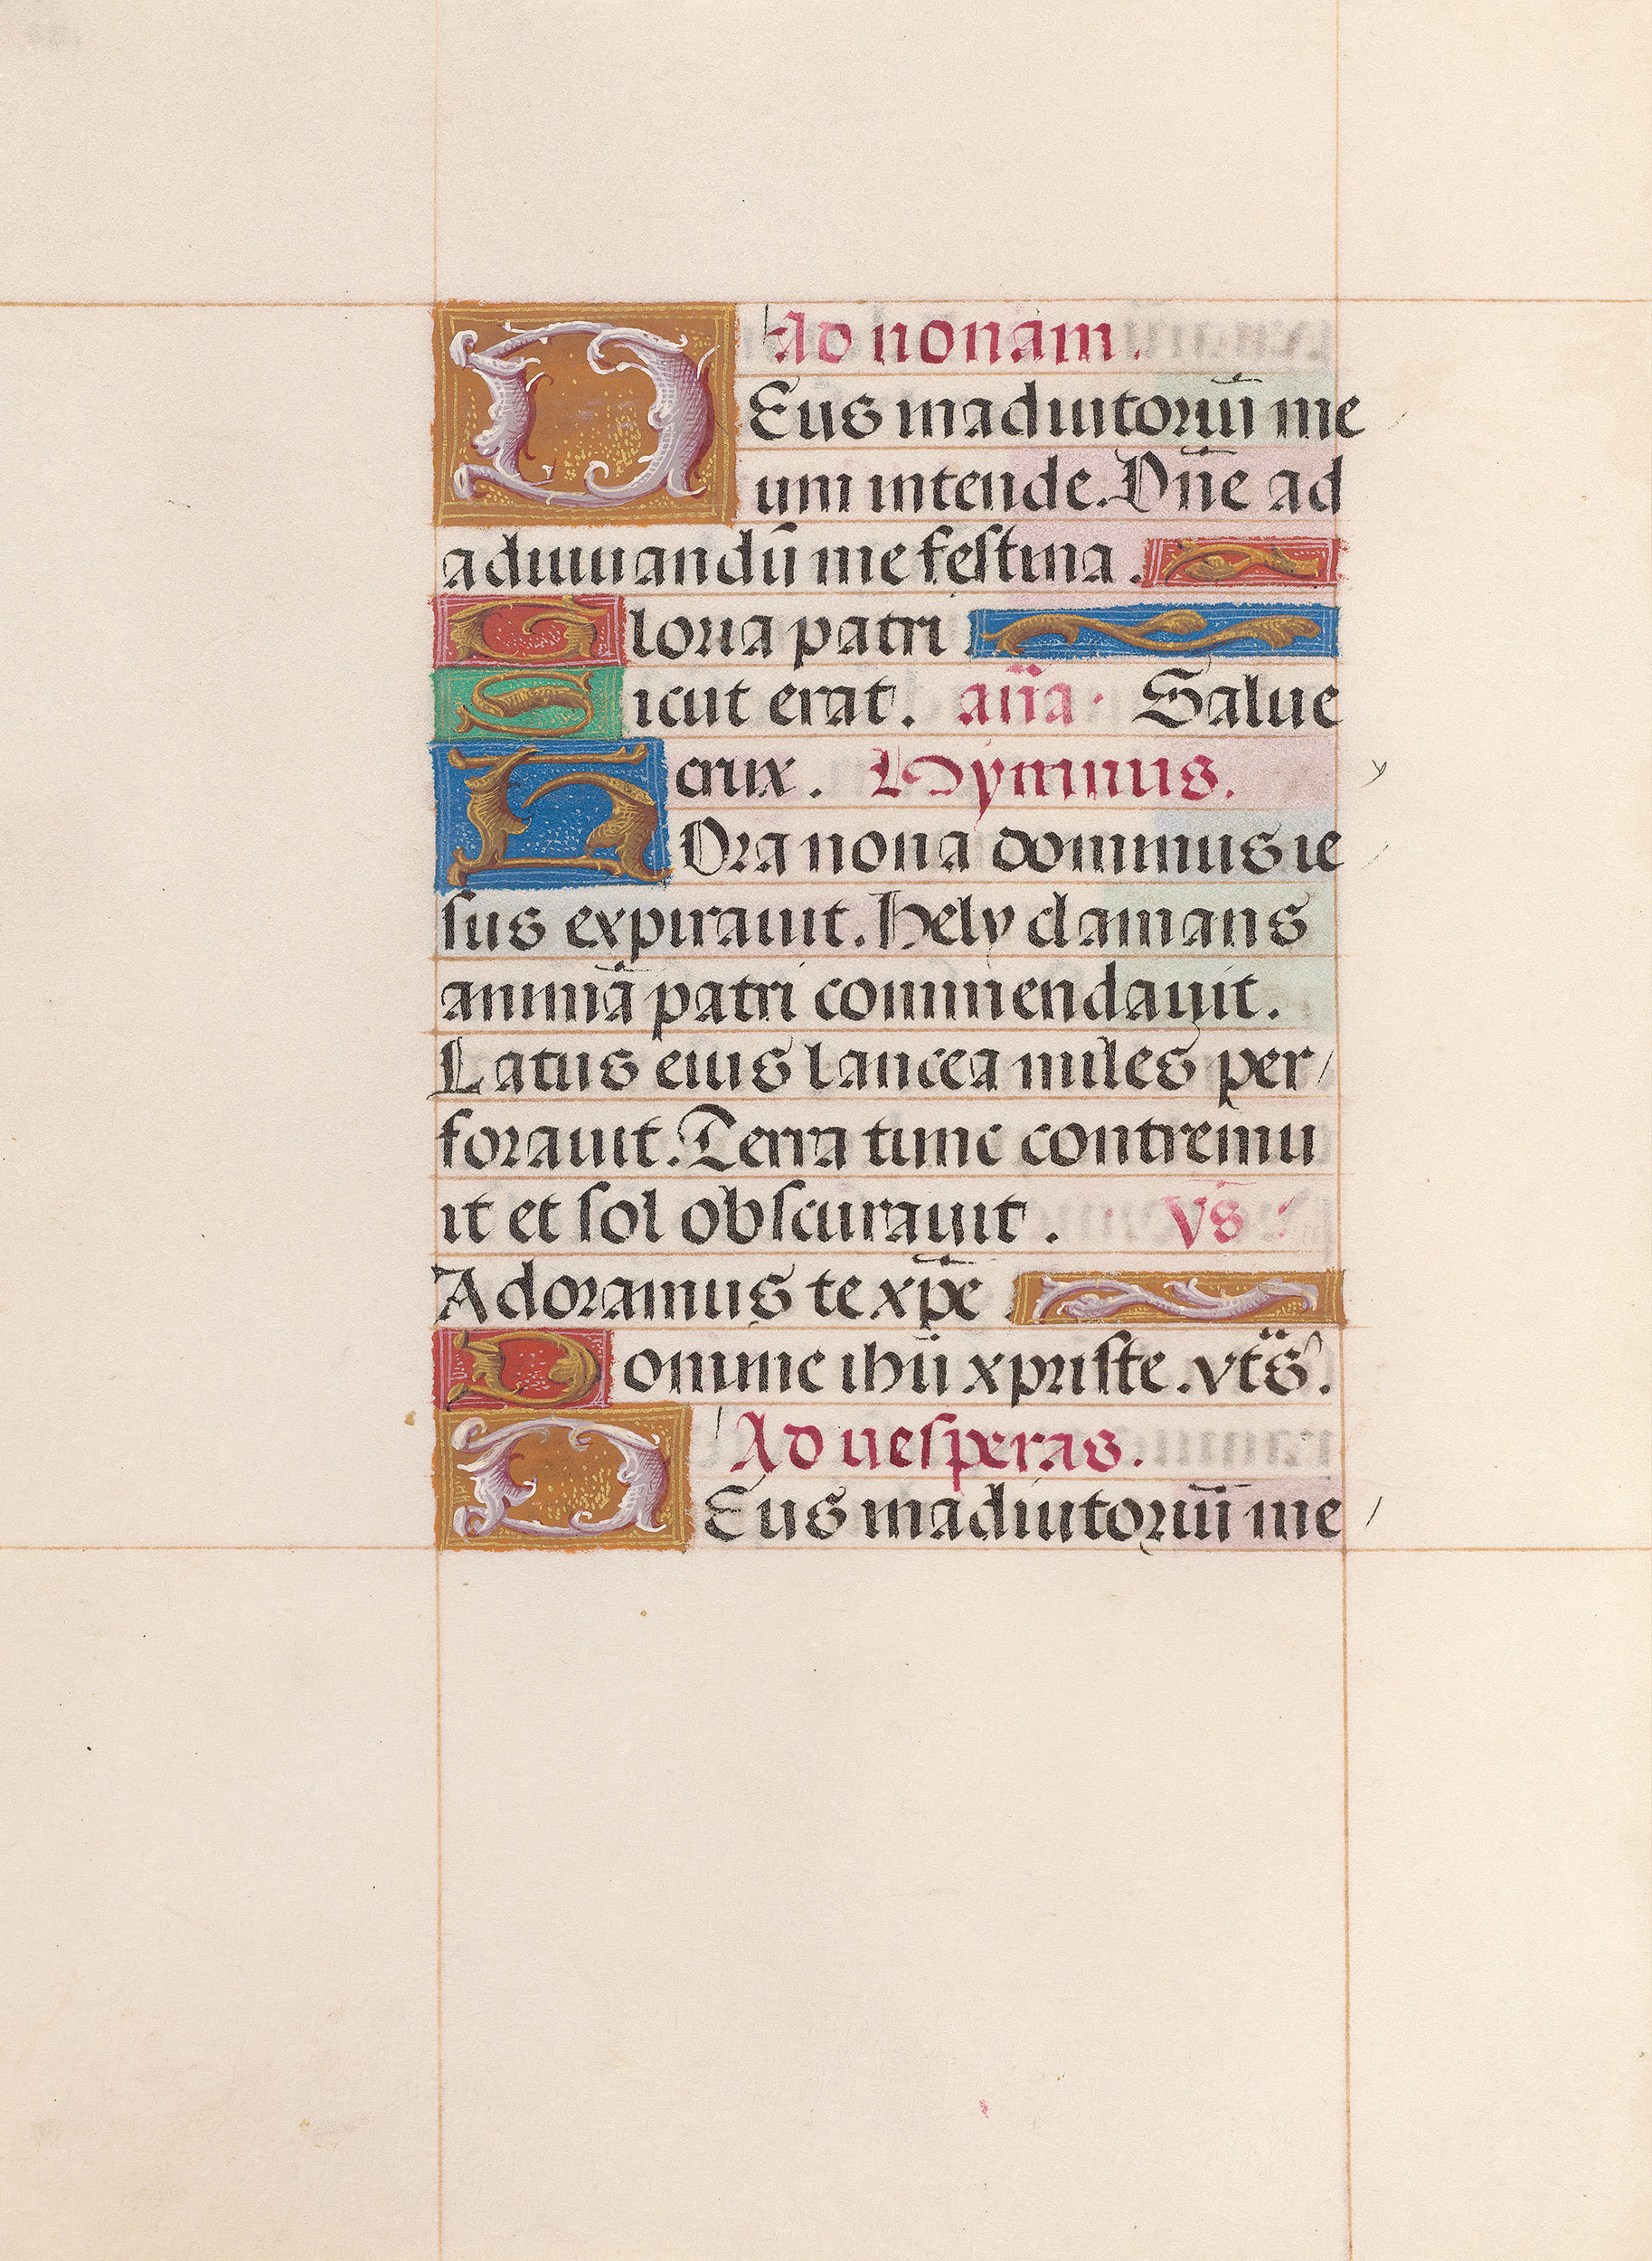 Ad nonam.
DEus in adiutoriū me
um intende. Dñe ad
adiuuandū me festina.
Gloria patri
Sicut erat. aña. Salue
crux. Hymnus.
HOra nona dominus ie
sus expirauit. Hely clamans
animā patri commendauit.
Latus eius lancea miles per/
forauit. Terra tunc contremu
it et sol obscurauit. Vs̄
Adoramus te xp̄e
Domine ihū xpriste. vts̄.
Ad uesperas.
DEus in adiutoriū me